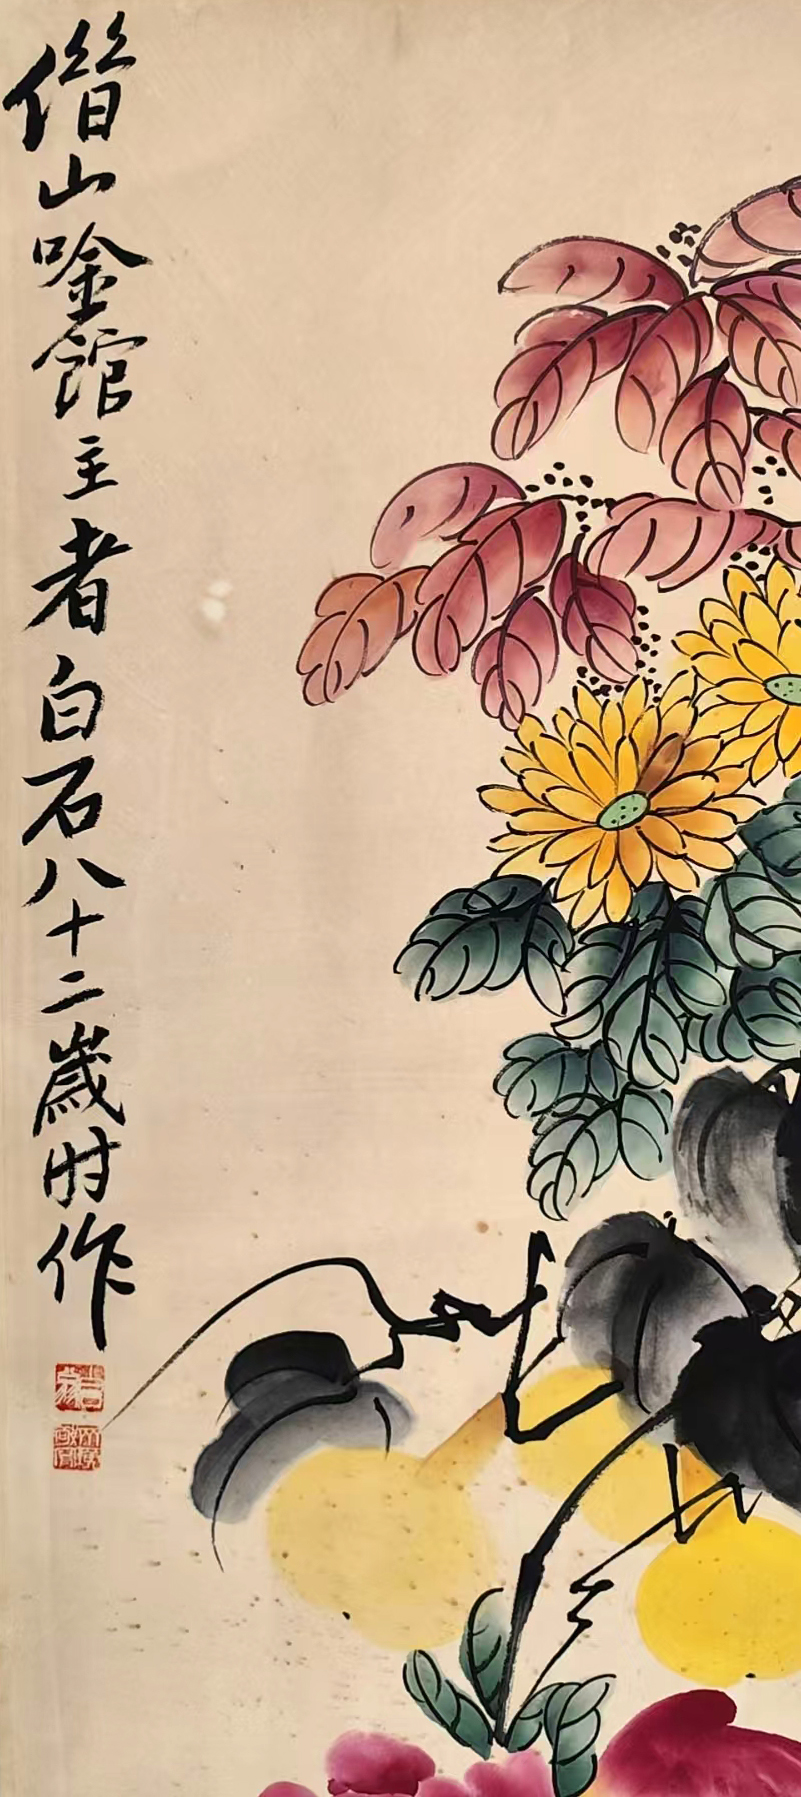 借山唫館主者白石八十二歲时作